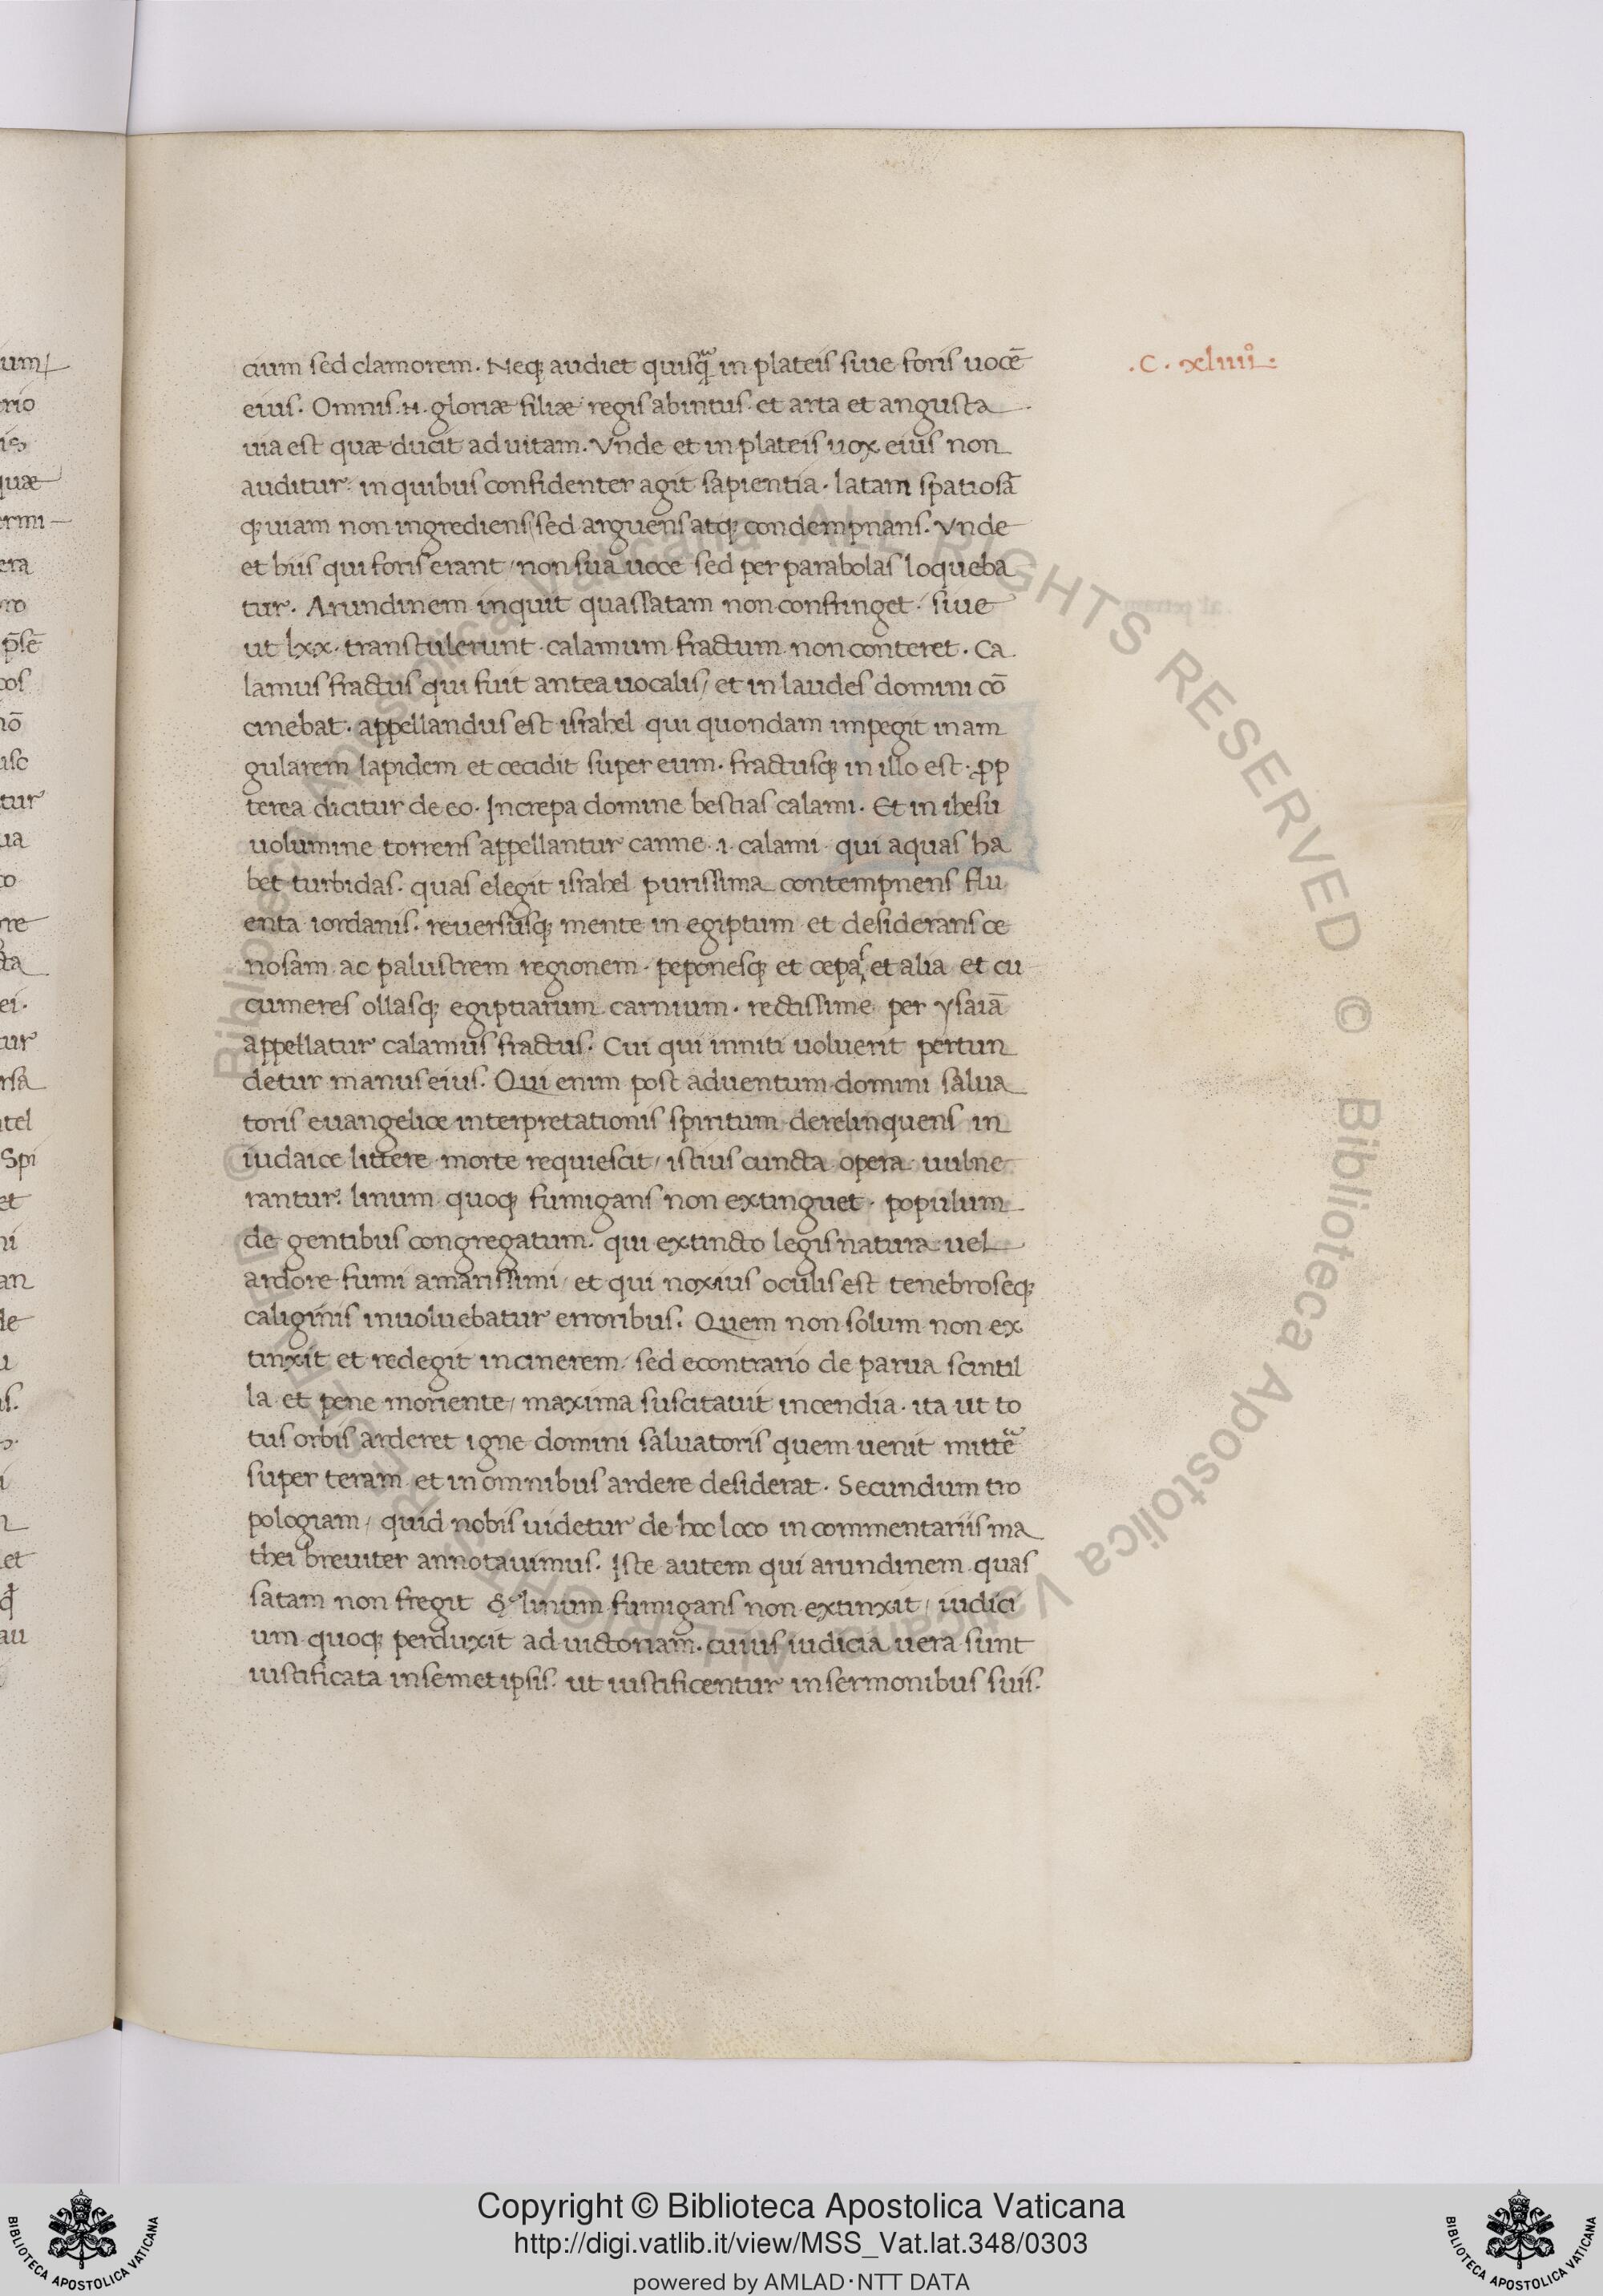 cium sed clamorem. Neq; audiet quisq̃ in plateis siue foris uocē
.C. xliiii°.
eius. Omnis .n. gloriæ filiæ regis abintus. et arta et angusta
uia est quæ ducit ad uitam. Vnde et in plateis uox eius non
auditur. in quibus confidenter agit sapientia. latam spatiosā
q; uiam non ingrediens/ sed arguens atq; condempnans. Vnde
et hiis qui foris erant/ non sua uoce sed per parabolas loqueba
tur. Arundinem inquit quassatam non confringet. siue
ut lxx. transtulerunt. calamum fractum non conteret. Ca
lamus fractus qui fuit antea uocalis/ et in laudes domini cō
cinebat. appellandus est israhel qui quondam impegit in am
gularem lapidem et cecidit super eum. fractusq; in illo est. ꝓp
terea dicitur de eo. Increpa domine bestias calami. Et in ihesu
uolumine torrens appellantur canne .i. calami. qui aquas ha
bet turbidas. quas elegit israhel purissima contempnens flu
enta iordanis. reuersusq; mente in egiptum et desiderans ce
nosam ac palustrem regionem. peponesq; et cepas et alia et cu
cumeres ollasq; egiptiarum carnium. rectissime per ysaiā
appellatur calamus fractus. Cui qui inniti uoluerit pertun
detur manus eius. Qui enim post aduentum domini salua
toris euangelice interpretationis spiritum derelinquens in
iudaice littere morte requiescit/ istius cuncta opera uulne
rantur. linum quoq; fumigans non extinguet. populum
de gentibus congregatum. qui extincto legis natura uel
ardore fumi amarissimi/ et qui noxius oculis est tenebroseq;
caliginis inuoluebatur erroribus. Quem non solum non ex
tinxit et redegit in cinerem/ sed econtrario de parua scintil
la et pene moriente/ maxima suscitauit incendia. ita ut to
tus orbis arderet igne domini saluatoris quem uenit mittē
super teram et in omnibus ardere desiderat. Secundum tro
pologiam/ quid nobis uidetur de hoc loco in commentariis ma
thei breuiter annotauimus. Iste autem qui arundinem quas
satam non fregit & linum fumigans non extinxit/ iudici
um quoq; perduxit ad uictoriam. cuius iudicia uera sunt
iustificata in semet ipsis. ut iustificentur in sermonibus suis.
Copyright © Biblioteca Apostolica Vaticana
http://digi.vatlib.it/view/MSS_Vat.lat.348/0303
powered by AMLAD·NTT DATA